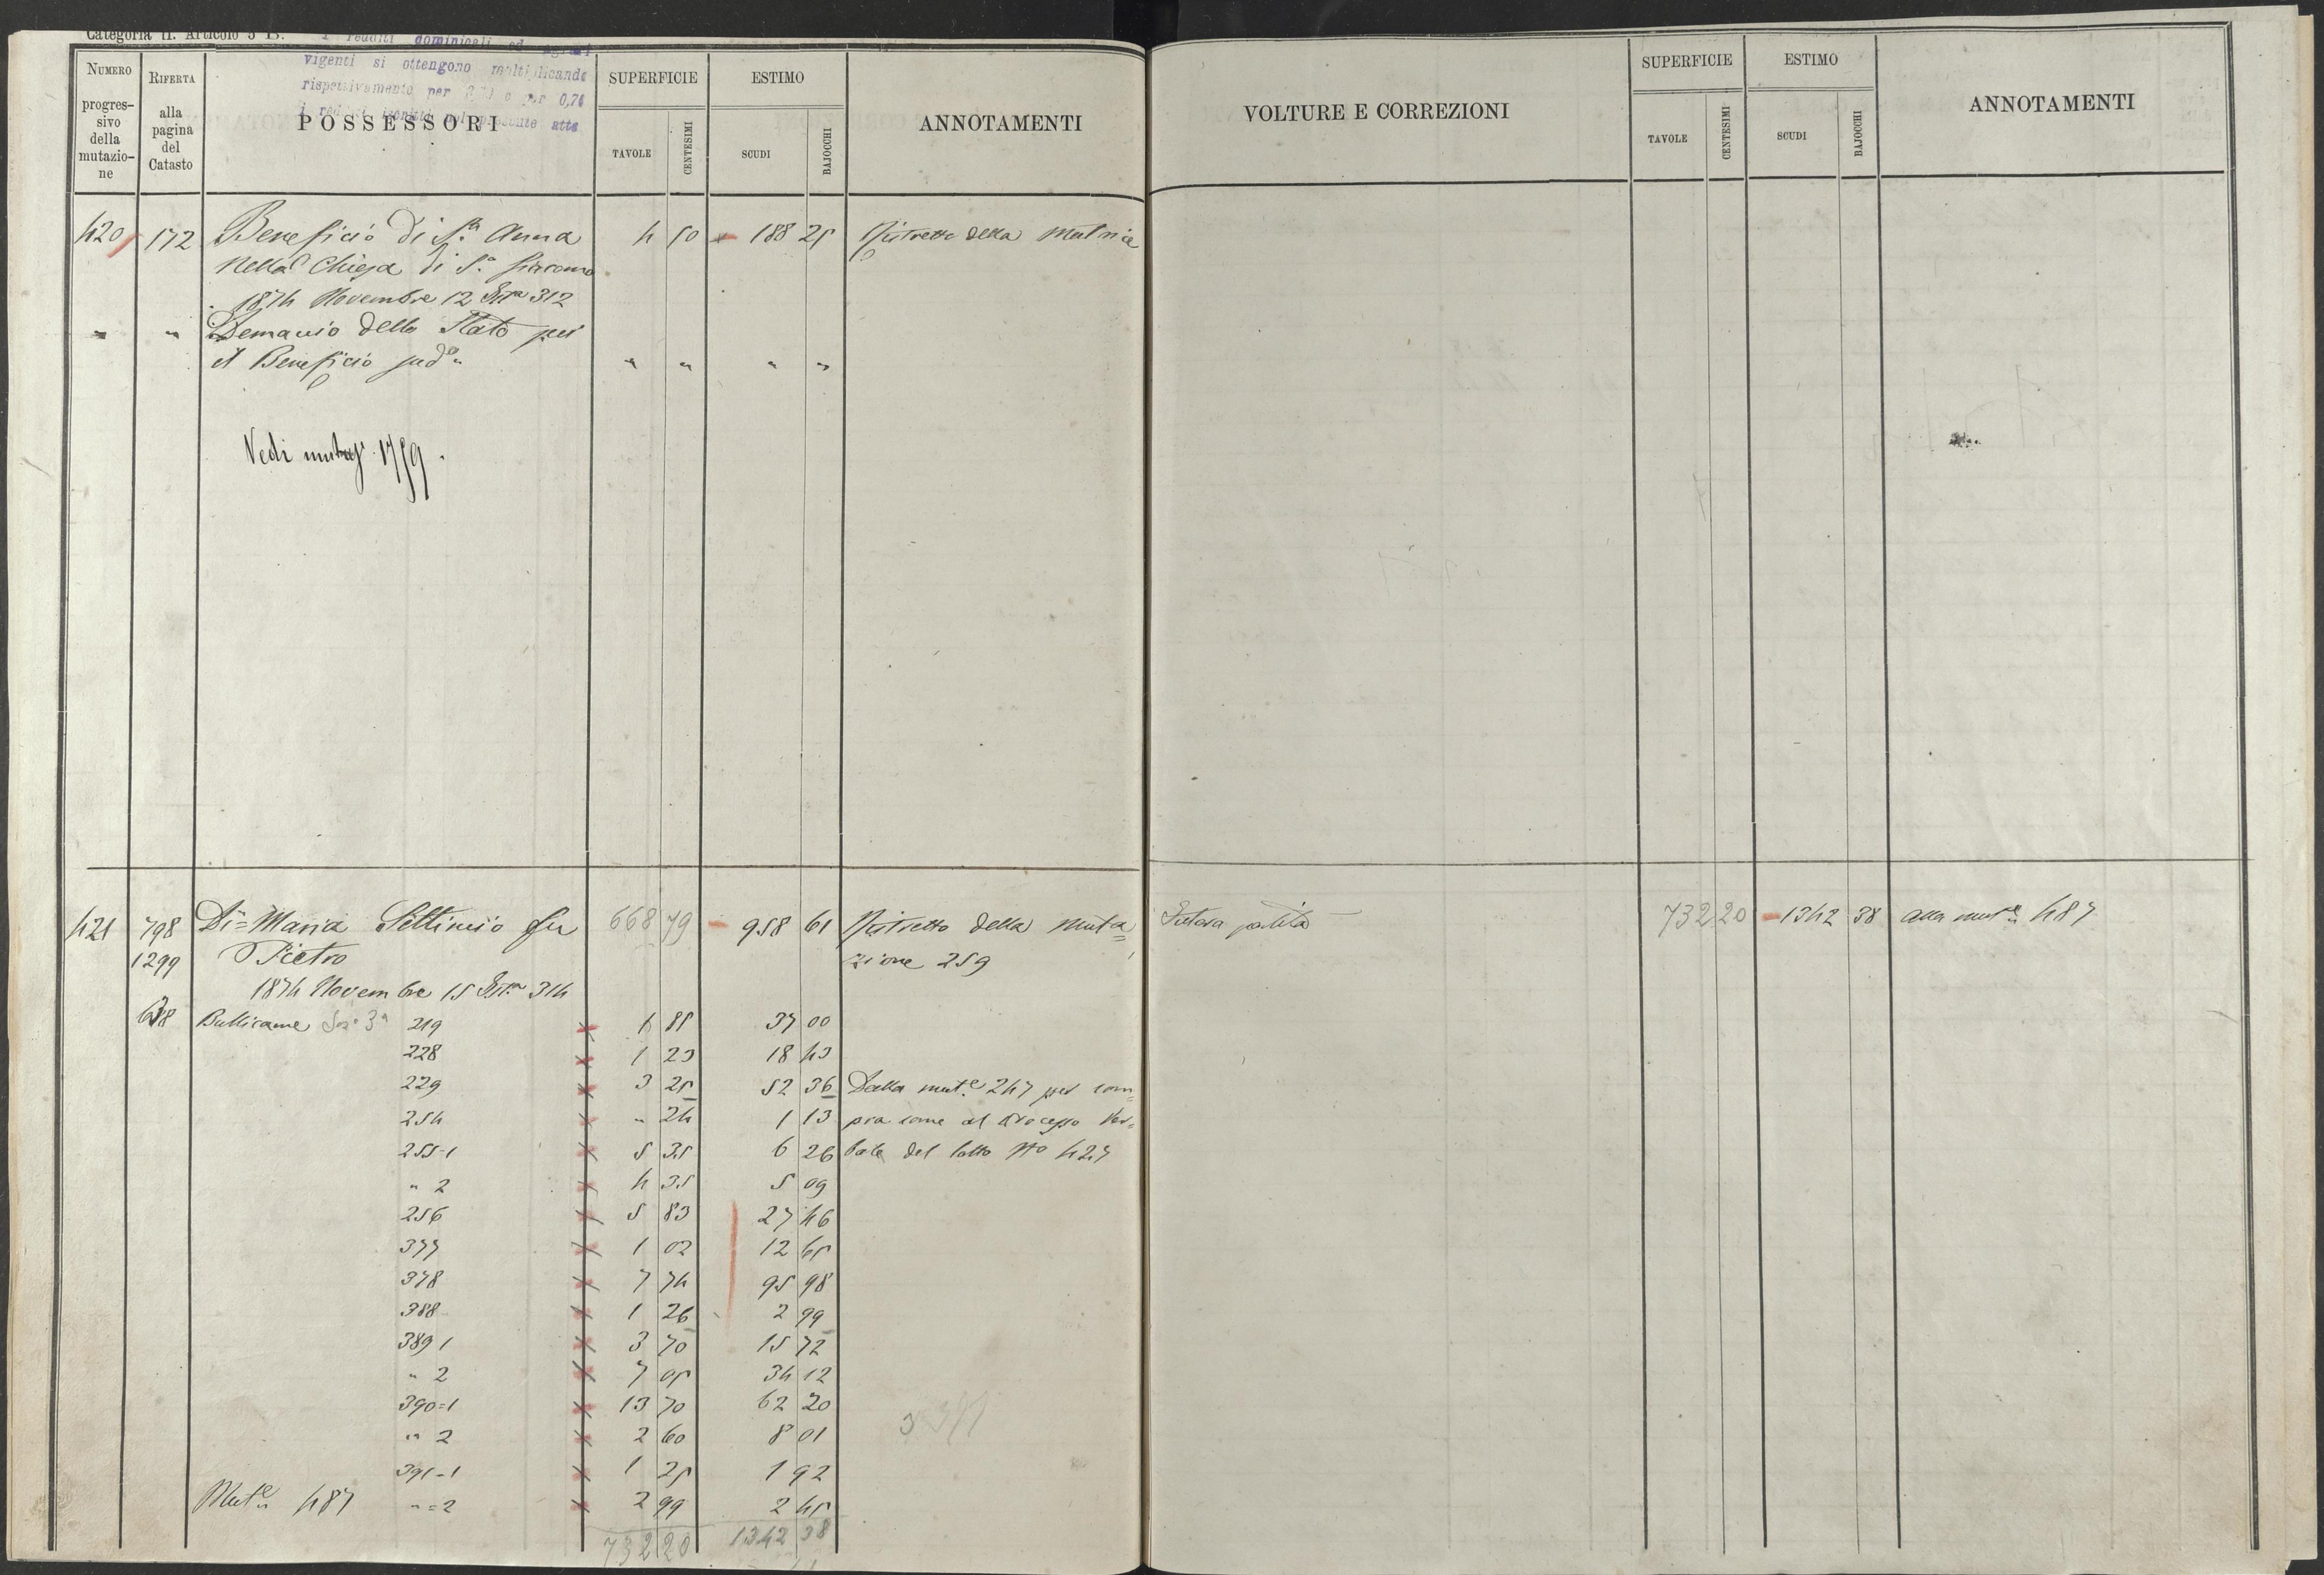 Categoria II. Articolo 5 B.
i redditi dominicali ed agrari
vigenti si ottengono moltiplicando
rispettivamente per e per 0,76
i redditi atto
NUMERO progres- sivo della mutazio- ne
RIFERTA alla pagina del Catasto
POSSESSORI
SUPERFICIE
TAVOLE CENTESIMI
ESTIMO
SCUDI BAJOCCHI
ANNOTAMENTI
420 172 Beneficio di S.ª Anna 4 50 188 25 Ristretto della Matrice
nella Chiesa di S.º Giacomo
1874 Novembre 12 312
" " Demanio dello Stato per
il Beneficio sud.º " " " "
Vedi 1759.
421 798 Di=Maria Settimio fu 668 79 958 61 Ristretto della Muta=
1299 Pietro zione 259
1874 Novembre 15 314
638 Bullicame Sez.e 3ª 219 1 85 37 00
228 1 23 18 43
229 3 25 52 36 Dalla mut.e 247 per com=
254 " 24 1 13 pra come al processo Ver=
255-1 5 35 6 26 bale del lotto Nº 427
" 2 4 35 5 09
256 5 83 27 46
377 1 02 12 65
378 7 74 95 98
388 1 26 2 99
389 1 3 70 15 72
" 2 7 05 34 12
390=1 13 70 62 20
" 2 2 60 8 01
391-1 1 25 1 92
Mut.e 487 " =2 2 99 2 45
732 20 1342 38
VOLTURE E CORREZIONI
SUPERFICIE
TAVOLE CENTESIMI
ESTIMO
SCUDI BAJOCCHI
ANNOTAMENTI
Intera partita 732 20 1342 38 alla mut.e 487